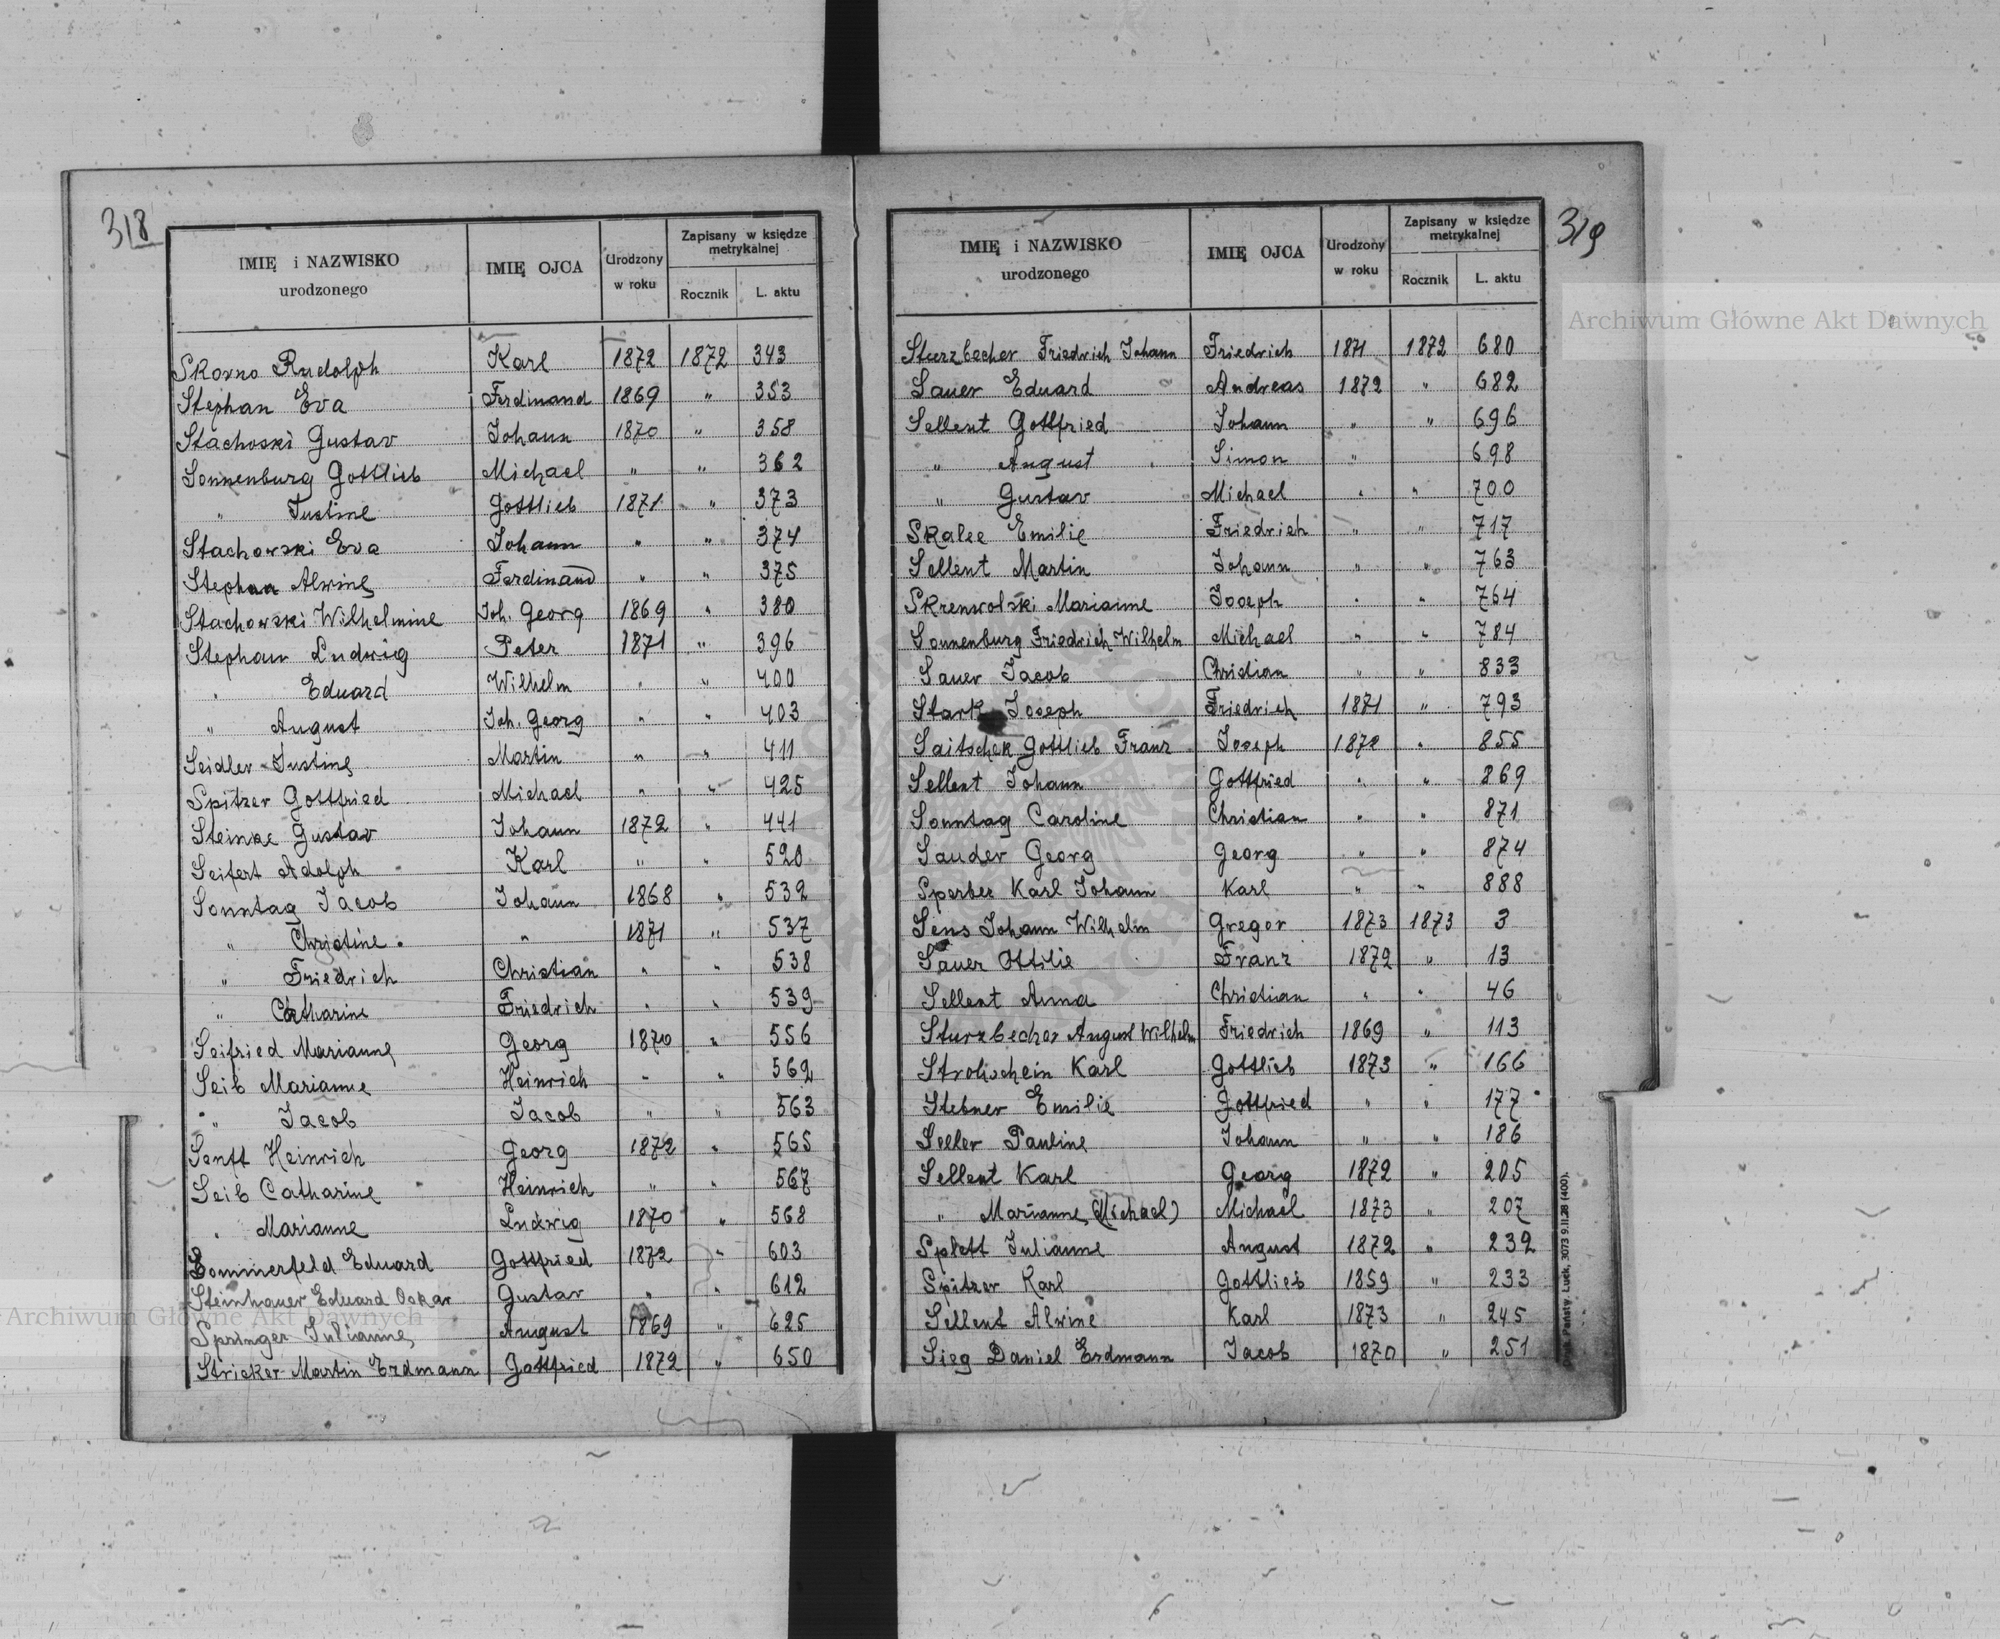 318
IMIĘ i NAZWISKO urodzonego | IMIĘ OJCA | Urodzony w roku | Zapisany w księdze metrykalnej
Rocznik | L. aktu
Skorno Rudolph | Karl | 1872 | 1872 | 343
Stephan Eva | Ferdinand | 1869 | " | 353
Stachoski Gustav | Johann | 1870 | " | 358
Sonnenburg Gottlieb | Michael | " | " | 362
" Justine | Gottlieb | 1871 | " | 373
Stachowski Eva | Johann | " | " | 374
Stephan Alwine | Ferdinand | " | " | 375
Stachowski Wilhelmine | Joh. Georg | 1869 | " | 380
Stephan Ludwig | Peter | 1871 | " | 396
" Eduard | Wilhelm | " | " | 400
" August | Joh. Georg | " | " | 403
Seidler Justine | Martin | " | " | 411
Spitzer Gottfried | Michael | " | " | 425
Steinke Gustav | Johann | 1872 | " | 441
Seifert Adolph | Karl | " | " | 520
Sonntag Jacob | Johann | 1868 | " | 532
" Christine | " | 1871 | " | 537
" Friedrich | Christian | " | " | 538
" Catharine | Friedrich | " | " | 539
Seifried Marianne | Georg | 1870 | " | 556
Seib Marianne | Heinrich | " | " | 562
" Jacob | Jacob | " | " | 563
Senft Heinrich | Georg | 1872 | " | 565
Seib Catharine | Heinrich | " | " | 567
" Marianne | Ludwig | 1870 | " | 568
Sommerfeld Eduard | Gottfried | 1872 | " | 603
Steinhauer Eduard Oskar | Gustav | " | " | 612
Springer Julianne | August | 1869 | " | 625
Stricker Martin Erdmann | Gottfried | 1872 | " | 650
319
IMIĘ i NAZWISKO urodzonego | IMIĘ OJCA | Urodzony w roku | Zapisany w księdze metrykalnej
Rocznik | L. aktu
Sturzbecher Friedrich Johann | Friedrich | 1871 | 1872 | 680
Sauer Eduard | Andreas | 1872 | " | 682
Sellent Gottfried | Johann | " | " | 696
" August | Simon | " | 698
" Gustav | Michael | " | " | 700
Skalee Emilie | Friedrich | " | " | 717
Sellent Martin | Johann | " | " | 763
Skrenwolski Marianne | Joseph | " | " | 764
Sonnenburg Friedrich Wilhelm | Michael | " | " | 784
Sauer Jacob | Christian | " | " | 833
Stark Joseph | Friedrich | 1871 | " | 793
Saitschek Gottlieb Franz | Joseph | 1872 | " | 855
Sellent Johann | Gottfried | " | " | 869
Sonntag Caroline | Christian | " | " | 871
Sauder Georg | Georg | " | " | 874
Sperber Karl Johann | Karl | " | " | 888
Sens Johann Wilhelm | Gregor | 1873 | 1873 | 3
Sauer Ottilie | Franz | 1872 | " | 13
Sellent Anna | Christian | " | " | 46
Sturzbecher August Wilhelm | Friedrich | 1869 | " | 113
Strohschein Karl | Gottlieb | 1873 | " | 166
Stebner Emilie | Gottfried | " | " | 177
Seeler Pauline | Johann | " | " | 186
Sellent Karl | Georg | 1872 | " | 205
" Marianne (Michael) | Michael | 1873 | " | 207
Splett Julianne | August | 1872 | " | 232
Spitzer Karl | Gottlieb | 1859 | " | 233
Sellent Alwine | Karl | 1873 | " | 245
Sieg Daniel Erdmann | Jacob | 1870 | " | 251
Państw. Łuck, 3073 9.II.28 (400).
Archiwum Główne Akt Dawnych
Archiwum Główne Akt Dawnych